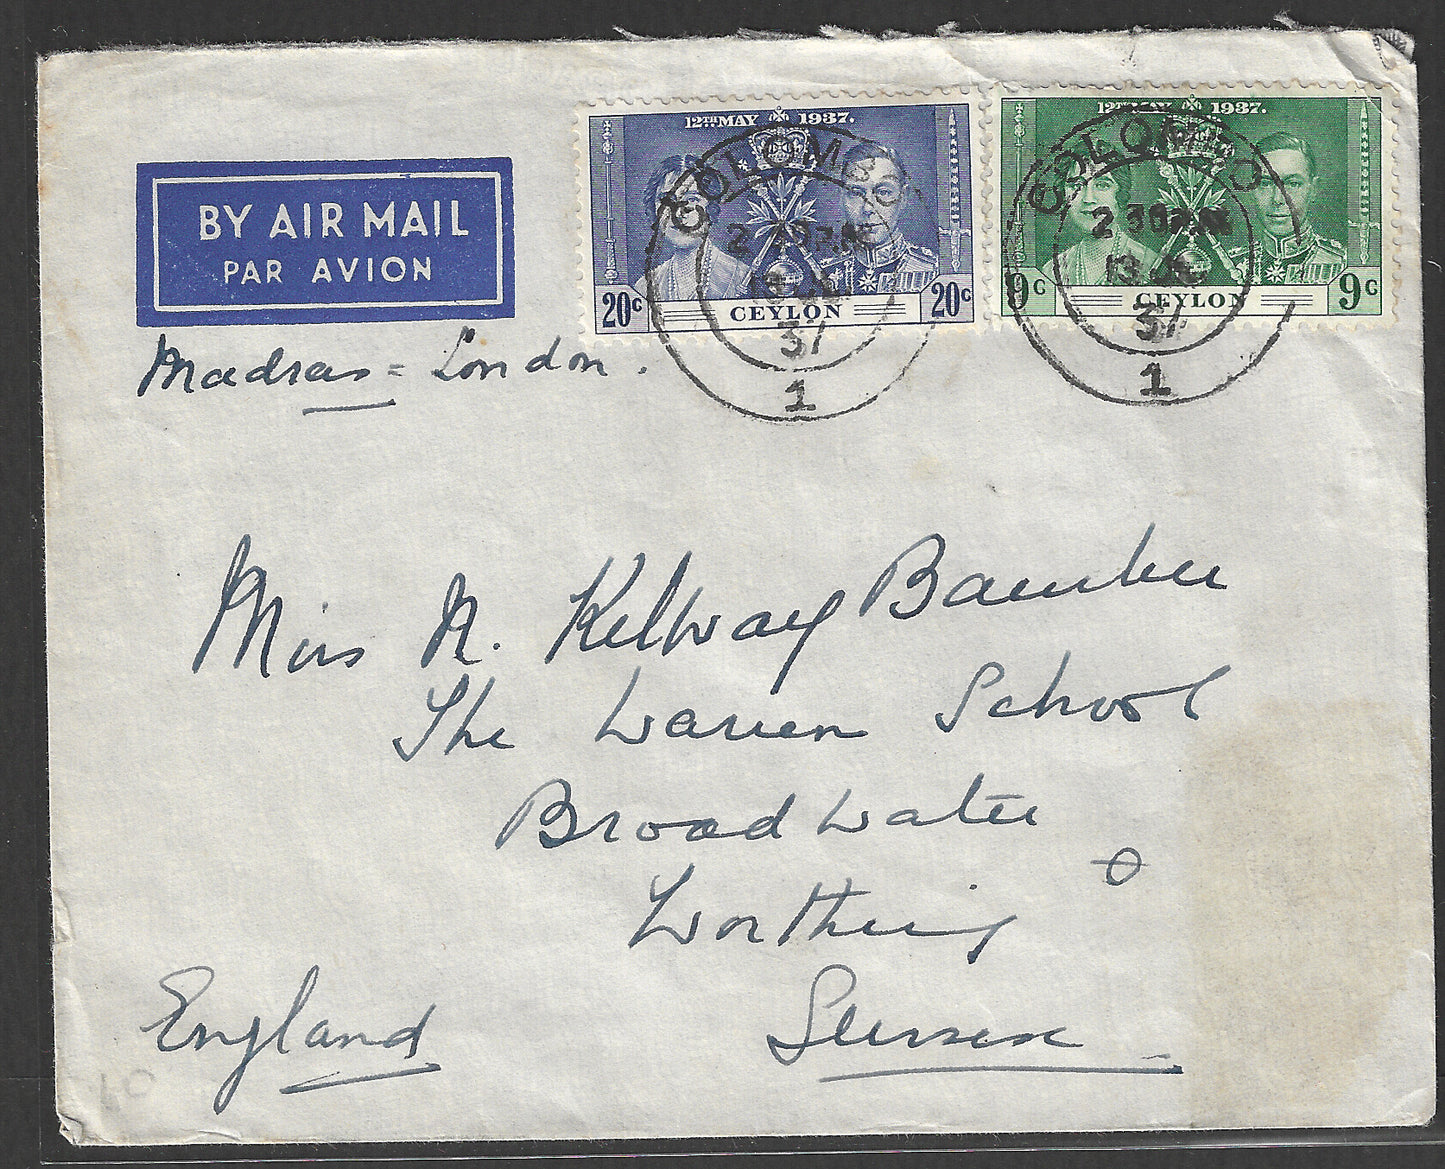 12TH MAY 1937.
20c CEYLON 20c
12TH MAY 1937.
9c CEYLON 9c
COLOMBO
2 30 P.M
13
37
1
COLOMBO
2 30 P.M
13
37
1
BY AIR MAIL
PAR AVION
Madras = London.
Miss N. Kelway Bamber
The Warren School
Broadwater
Worthing
Sussex
England
10